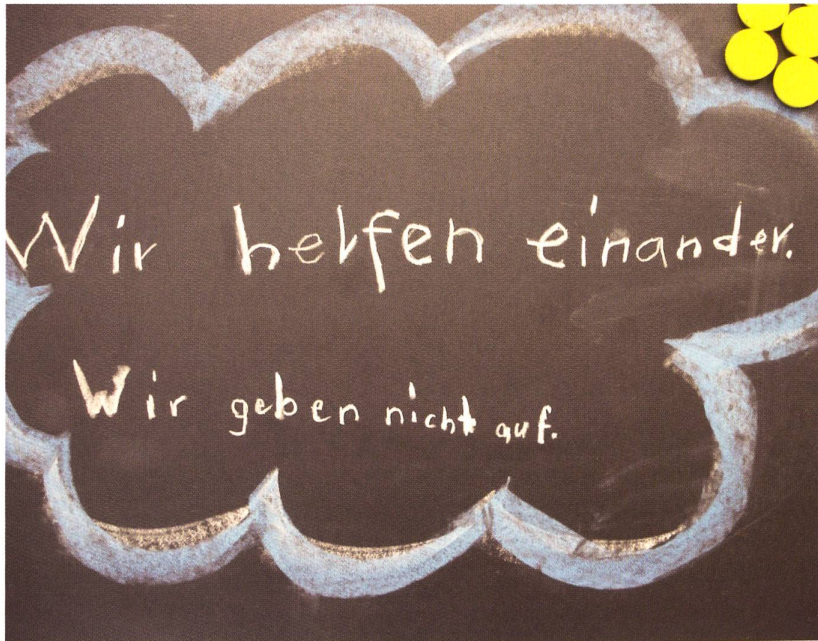 Wir helfen einander.
Wir geben nicht auf.